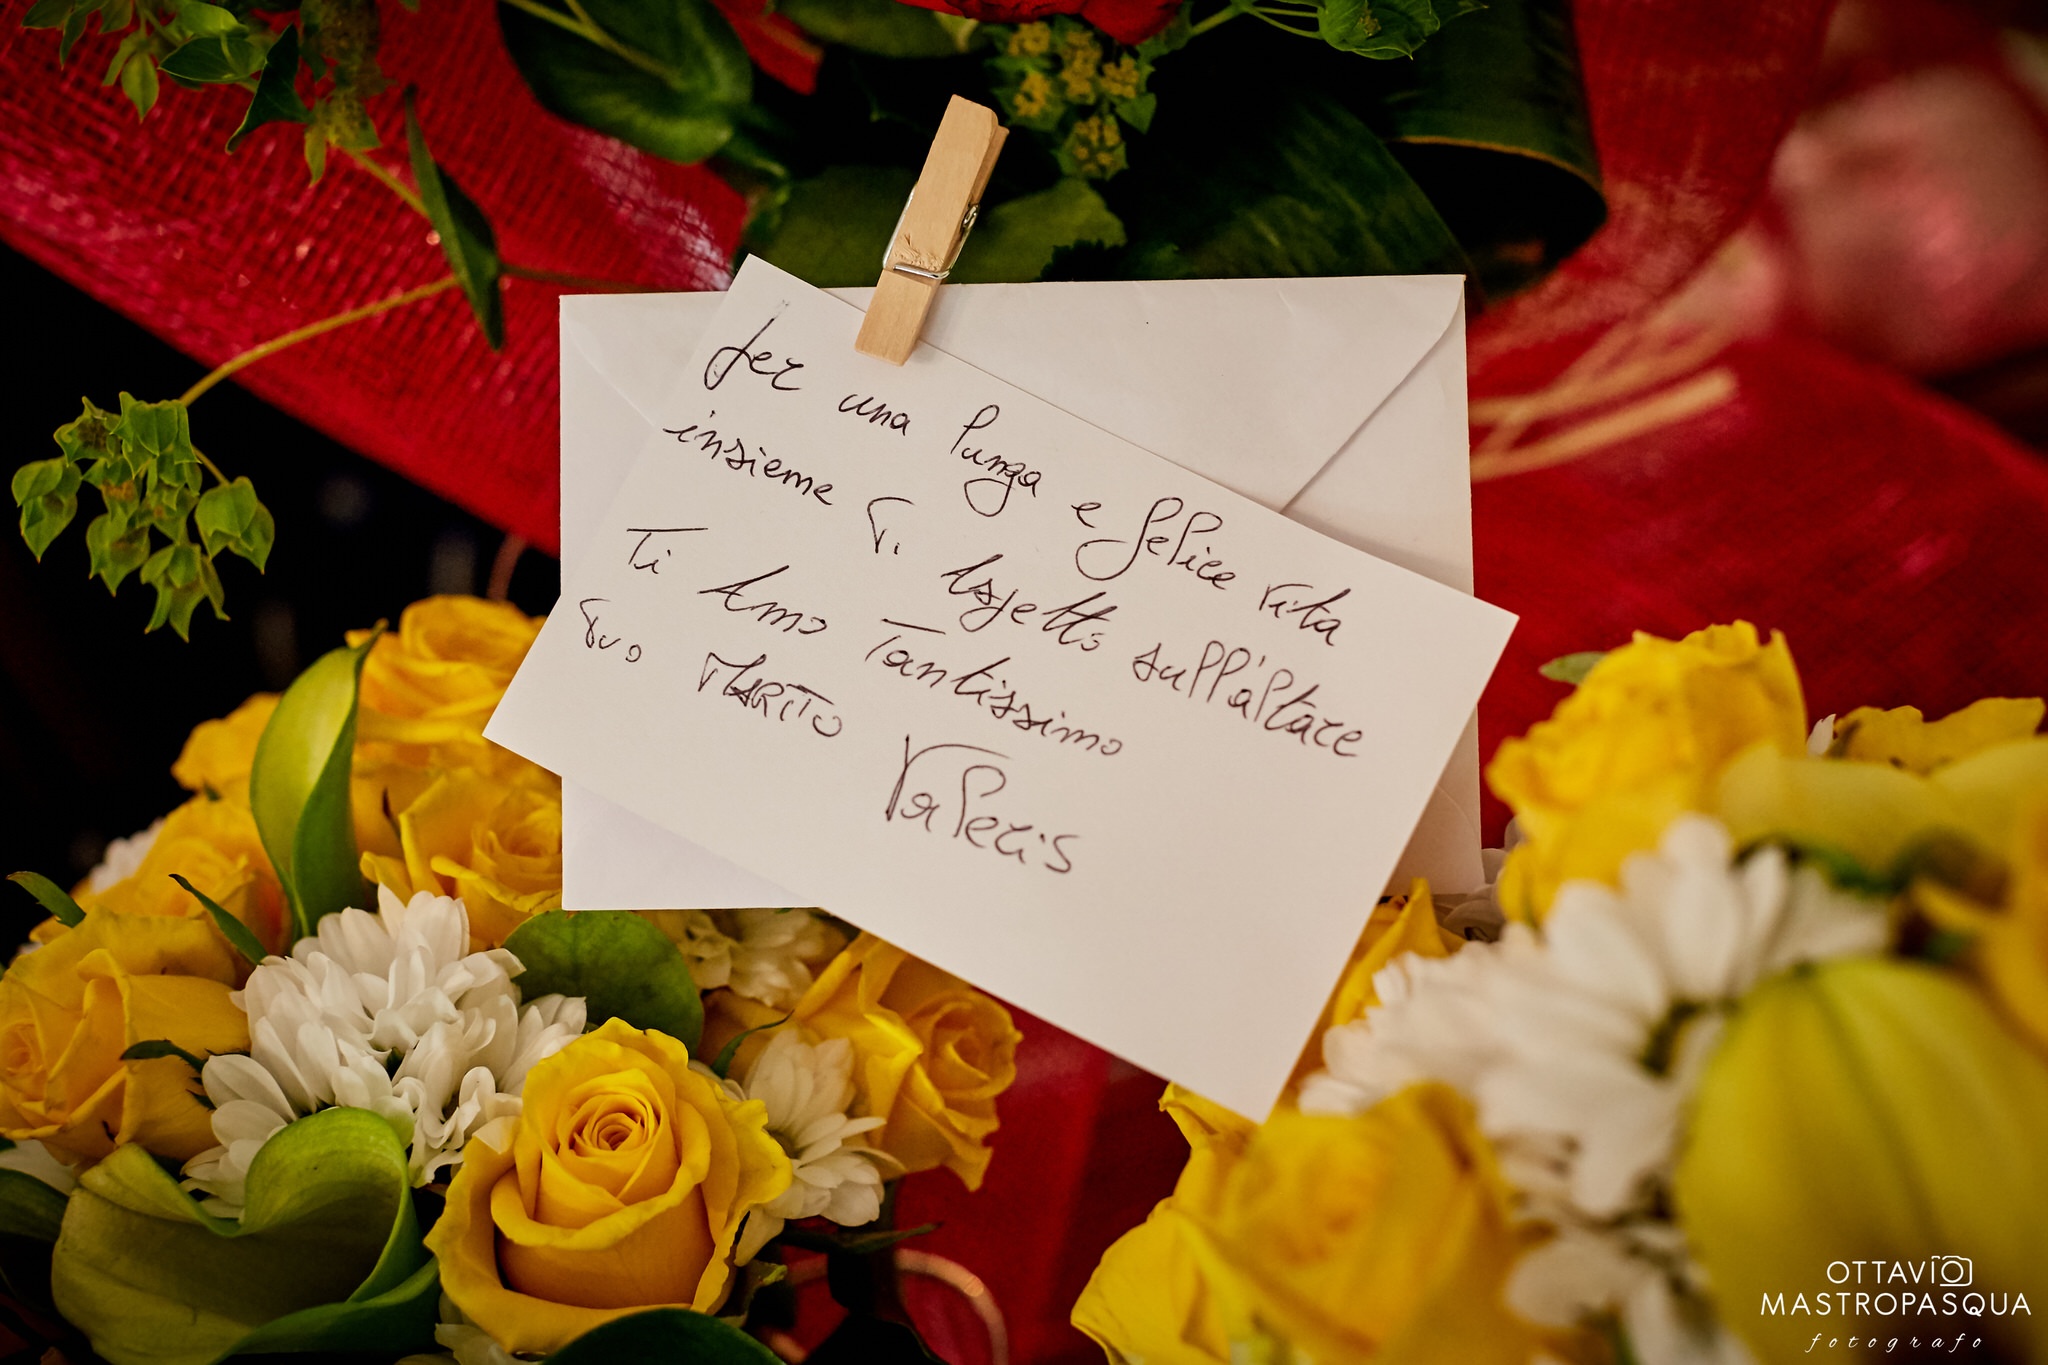 Per una lunga e felice vita
insieme Ti Aspetto sull'altare
Ti Amo Tantissimo
Tuo MARITO Valeris
OTTAVIO
MASTROPASQUA
fotografo